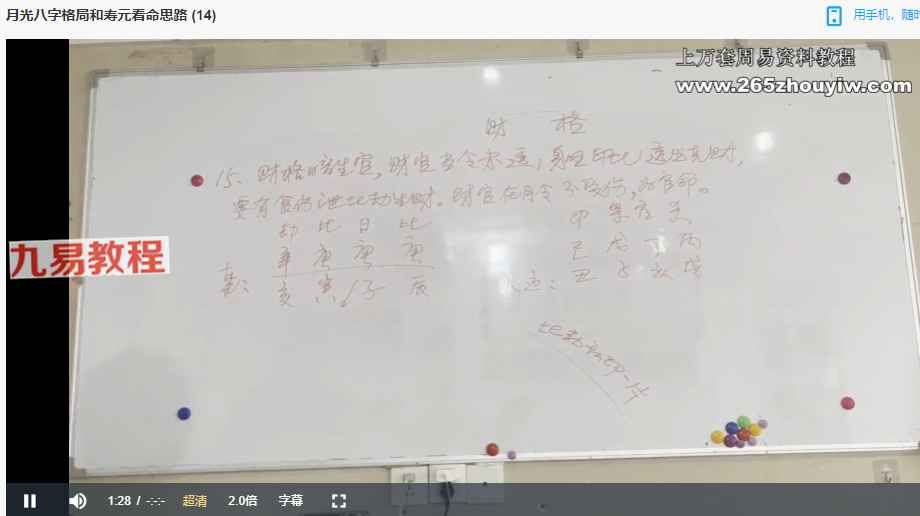 月光八字格局和寿元看命思路 (14)
用手机，随时
上万套周易资料教程
www.265zhouyiw.com
财 格
15、财格暗生官，财官当令不透，身旺印比透出克财，
要有食伤泄比劫生财。财官在月令不受伤，为官命。
劫 比 日 比
辛 庚 庚 庚
亥 寅 子 辰
己 戊 丁 丙
丑 子 亥 戌
九易教程
1:28 / -:-:-
超清
2.0倍
字幕